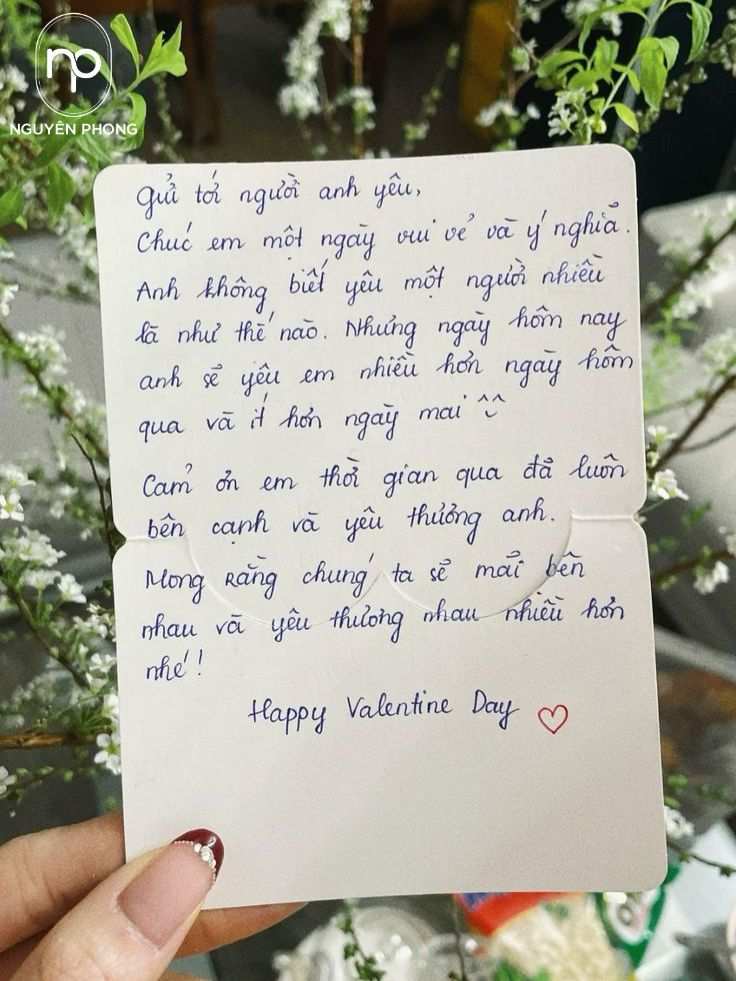 np
NGUYÊN PHONG
Gửi tới người anh yêu,
Chúc em một ngày vui vẻ và ý nghĩa.
Anh không biết yêu một người nhiều
là như thế nào. Nhưng ngày hôm nay
anh sẽ yêu em nhiều hơn ngày hôm
qua và ít hơn ngày mai ^^
Cảm ơn em thời gian qua đã luôn
bên cạnh và yêu thương anh.
Mong rằng chúng ta sẽ mãi bên
nhau và yêu thương nhau nhiều hơn
nhé!
Happy Valentine Day ♡